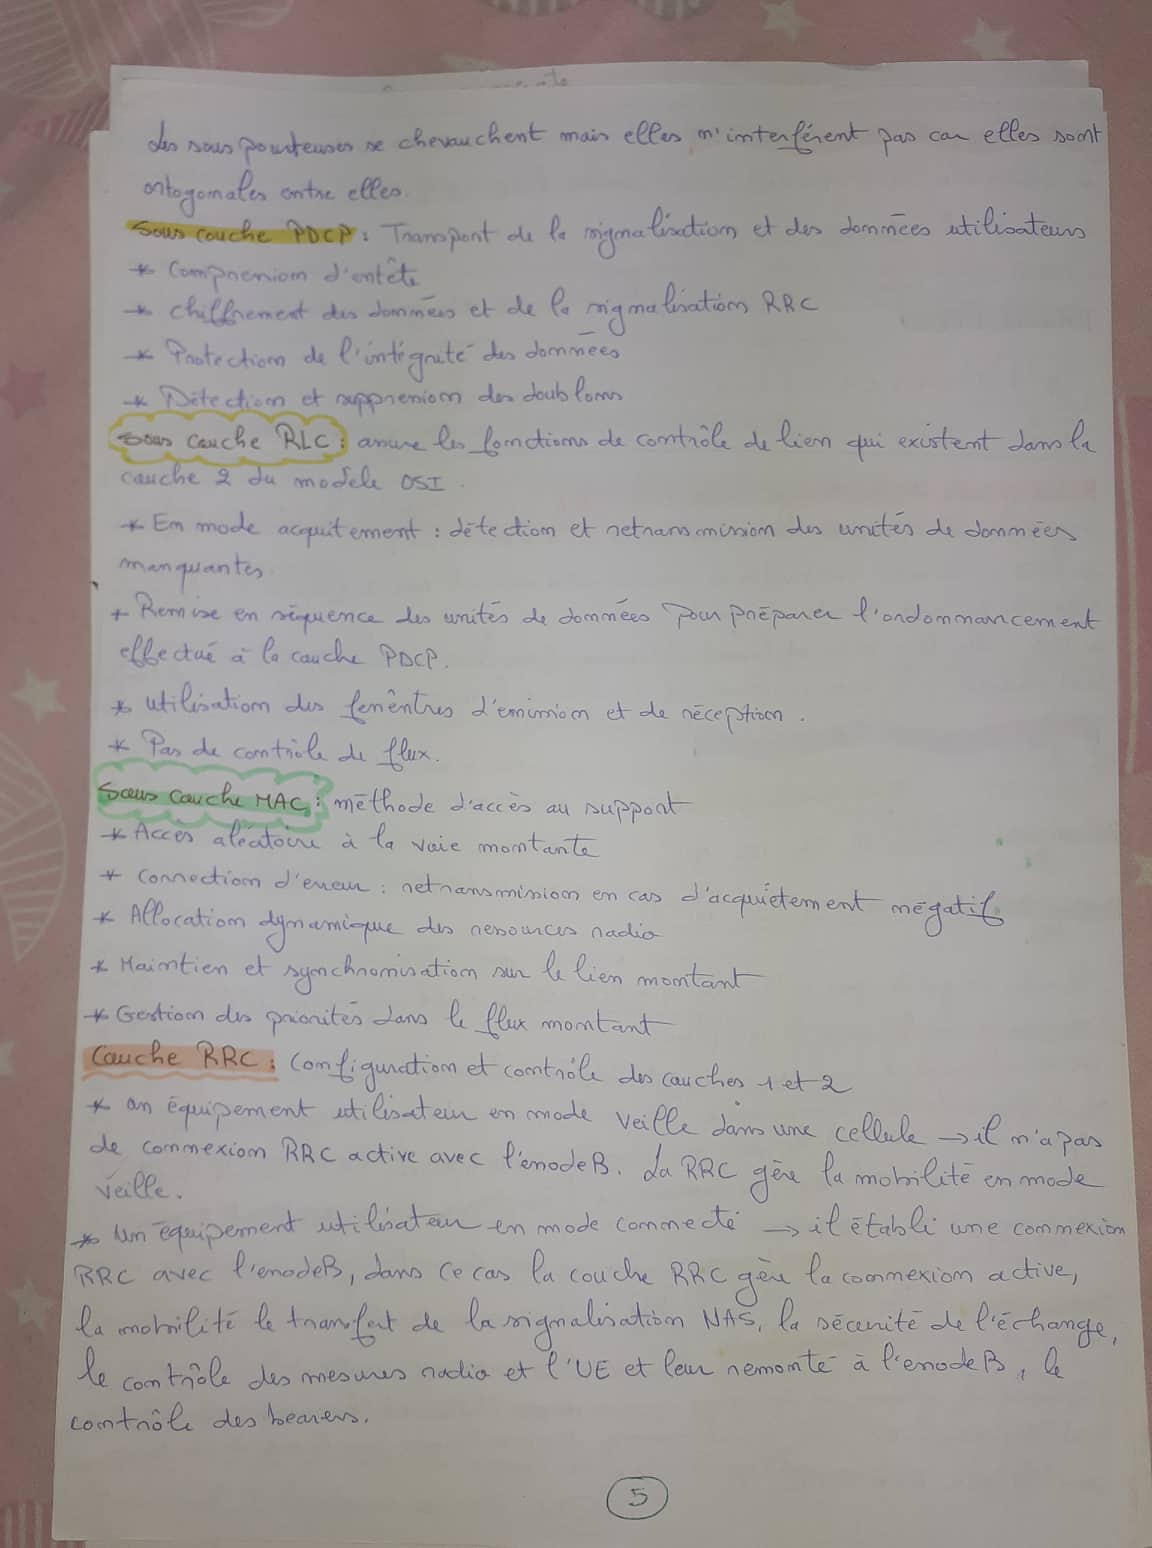 des sous porteuses se chevauchent mais elles n'interfèrent pas car elles sont
ortogonales entre elles.
Sous couche PDCP : Transport de la signalisation et des données utilisateurs
* Compression d'entête
* chiffrement des données et de la signalisation RRC
* Protection de l'intégrité des données
* Détection et suppression des doublons
Sous couche RLC : assure les fonctions de contrôle de lien qui existent dans la
couche 2 du modèle OSI.
* En mode acquitement : détection et retransmission des unités de données
manquantes.
+ Remise en séquence des unités de données pour préparer l'ordonnancement
effectué à la couche PDCP.
* utilisation des fenêntres d'émission et de réception.
* Pas de contrôle de flux.
Sous couche MAC : méthode d'accès au support
* Accès aléatoire à la voie montante
* Correction d'erreur : retransmission en cas d'acquiétement négatif
* Allocation dynamique des ressources radio
* Maintien et synchronisation sur le lien montant
* Gestion des priorités dans le flux montant
Couche RRC : Configuration et contrôle des couches 1 et 2
* un équipement utilisateur en mode veille dans une cellule → il n'a pas
de connexion RRC active avec l'enodeB. La RRC gère la mobilité en mode
veille.
* un équipement utilisateur en mode connecté → il établi une connexion
RRC avec l'enodeB, dans ce cas la couche RRC gère la connexion active,
la mobilité le transfert de la signalisation NAS, la sécurité de l'échange,
le contrôle des mesures radio et l'UE et leur remonté à l'enodeB, le
contrôle des bearers.
5